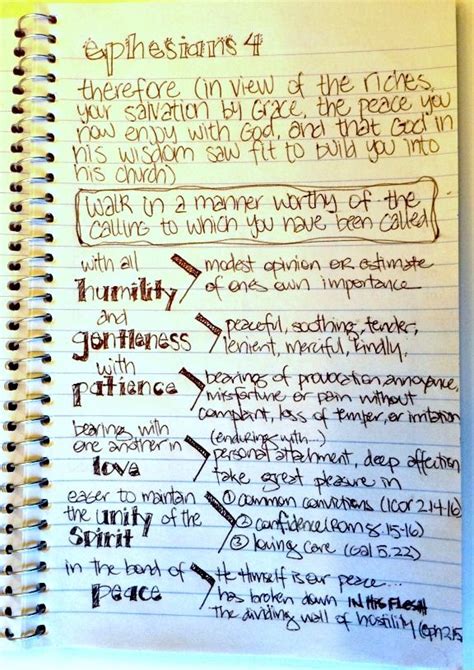 ephesians 4
therefore (in view of the riches,
your salvation by Grace, the peace you
now enjoy with God, and that God in
his wisdom saw fit to build you into
his church)
walk in a manner worthy of the
calling to which you have been called
with all
humility
modest opinion or estimate
of ones own importance
and
gentleness
peaceful, soothing, tender,
lenient, merciful, kindly,
with
patience
bearings of provocation, annoyance,
misfortune or pain without
complaint, loss of temper, or irritation
bearing with
one another in
love
(enduring with...)
personal attachment, deep affection
take great pleasure in
eager to maintain
the unity of the
Spirit
① common convictions (1 Cor 2.14-16)
② confidence (Rom 8.15-16)
③ loving care (Gal 5.22)
in the bond of
peace
He Himself is our peace...
has broken down IN HIS FLESH
the dividing wall of hostility (eph 2.15